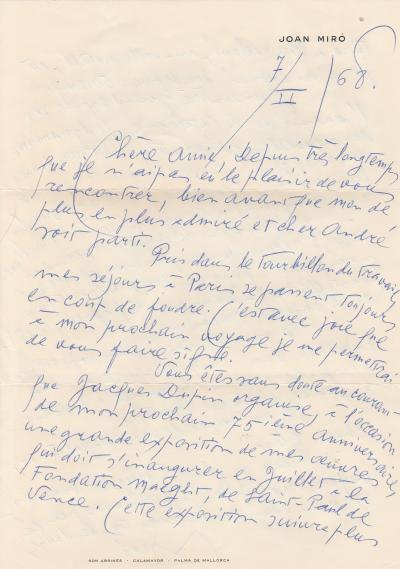 JOAN MIRÓ
7/II/68.
Chère amie, Depuis très longtemps
que je n'ai pas eu le plaisir de vous
rencontrer, bien avant que mon de
plus en plus admiré et cher André
soit parti.
Pris dans le tourbillon du travail,
mes séjours à Paris se passent toujours
en coup de foudre. C'est avec joie que
à mon prochain voyage je me permettrai
de vous faire signe.
Vous êtes sans doute au courant
que Jacques Dupin organise, à l'occasion
de mon prochain 75ième anniversaire,
une grande exposition de mes oeuvres
qui doit s'inaugurer en Juillet à la
Fondation Maeght, de Saint-Paul de
Vence. Cette exposition suivra plus
SON ABRINES - CALAMAYOR - PALMA DE MALLORCA